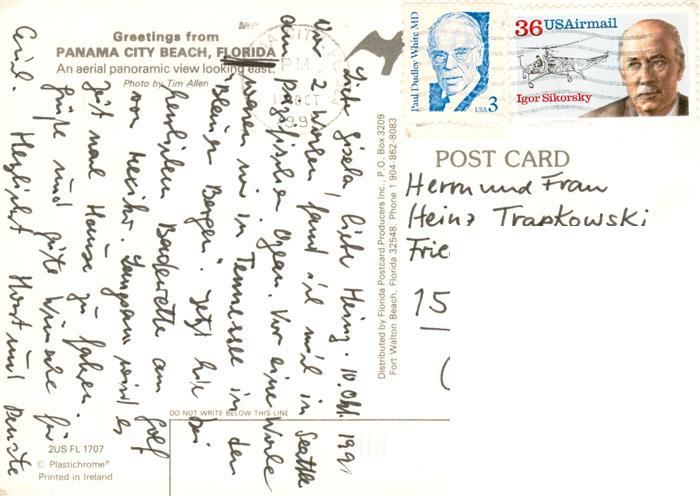 Greetings from
PANAMA CITY BEACH, FLORIDA
An aerial panoramic view looking east.
Photo by Tim Allen
PM
OCT
Paul Dudley White MD
USA 3
36 USAirmail
Igor Sikorsky
POST CARD
Distributed by Florida Postcard Producers Inc., P.O. Box 3209
Fort Walton Beach, Florida 32548. Phone 1 904-862-8083
Herrn und Frau
Heinz Trapkowski
Frie
15
10. Okt. 1991
Liebe Gisela, lieber Heinz.
Vor 2 Wochen sind wir in Seattle
am pazifischen Ozean. Vor eine Woche
waren wir in Tennessee in den
"Blauen Bergen". Jetzt hier bei
herrlichem Badewetter am Golf
von Mexiko. Langsam wird es
Zeit nach Hause zu fahren.
Grüße und gute Wünsche für
Euch. Herzlichst Horst und
DO NOT WRITE BELOW THIS LINE
2US FL 1707
© Plastichrome®
Printed in Ireland